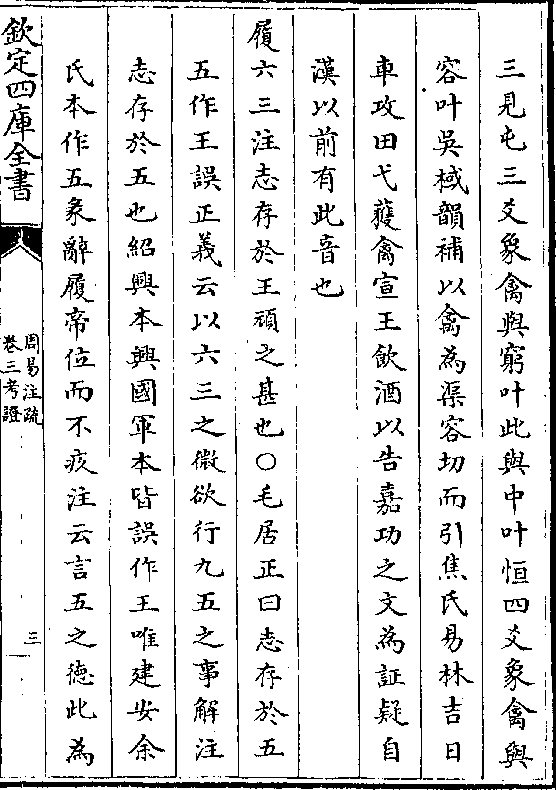 三見屯三爻象禽與窮叶此與中叶恒四爻象禽與
容叶吳棫韻補以禽為渠容切而引焦氏易林吉日
車攻田弋䕶禽宣王飲酒以告嘉功之文為証疑自
漢以前有此音也
履六三注志存於王頑之甚也○毛居正曰志存於五
五作王誤正義云以六三之微欲行九五之事解注
志存於五也紹興本興國軍本皆誤作王唯建安余
氏本作五彖辭履帝位而不疚注云言五之德此為
欽定四庫全書
周易注疏
卷三考證
三